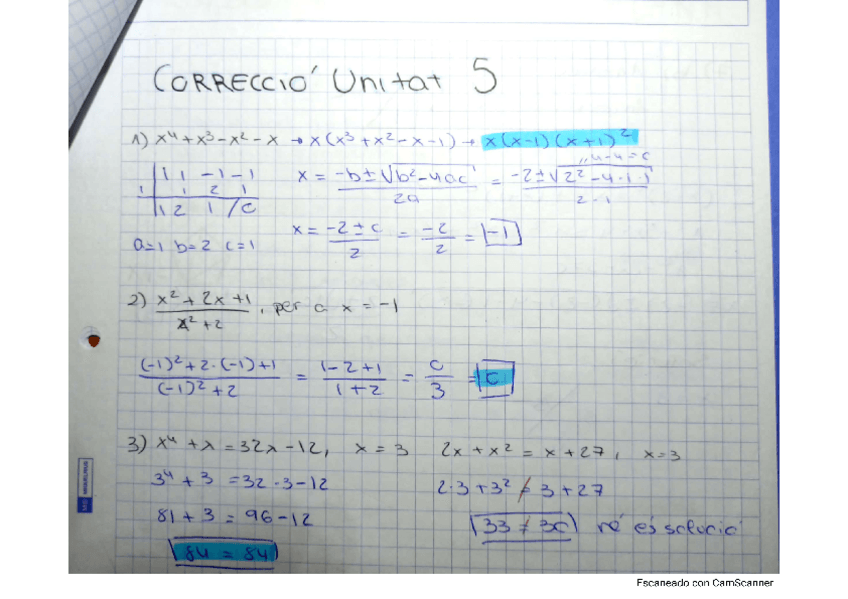 CORRECCIO' Unitat 5
1) x⁴+x³-x²-x → x(x³+x²-x-1) → x(x-1)(x+1)²
4-4=0
1 1 -1 -1
1 1 2 1
1 2 1 /0
x = -b±√b²-4ac / 2a = -2±√2²-4·1·1 / 2·1
a=1 b=2 c=1
x = -2±0 / 2 = -2 / 2 = -1
2) x²+2x+1 / x²+2, per a x=-1
(-1)²+2·(-1)+1 / (-1)²+2 = 1-2+1 / 1+2 = 0 / 3 = 0
3) x⁴+x=32x-12, x=3
3⁴+3=32·3-12
81+3=96-12
84=84
2x+x²=x+27, x=3
2·3+3²≠3+27
33≠30 no és solució
MIQUELRIUS
Escaneado con CamScanner